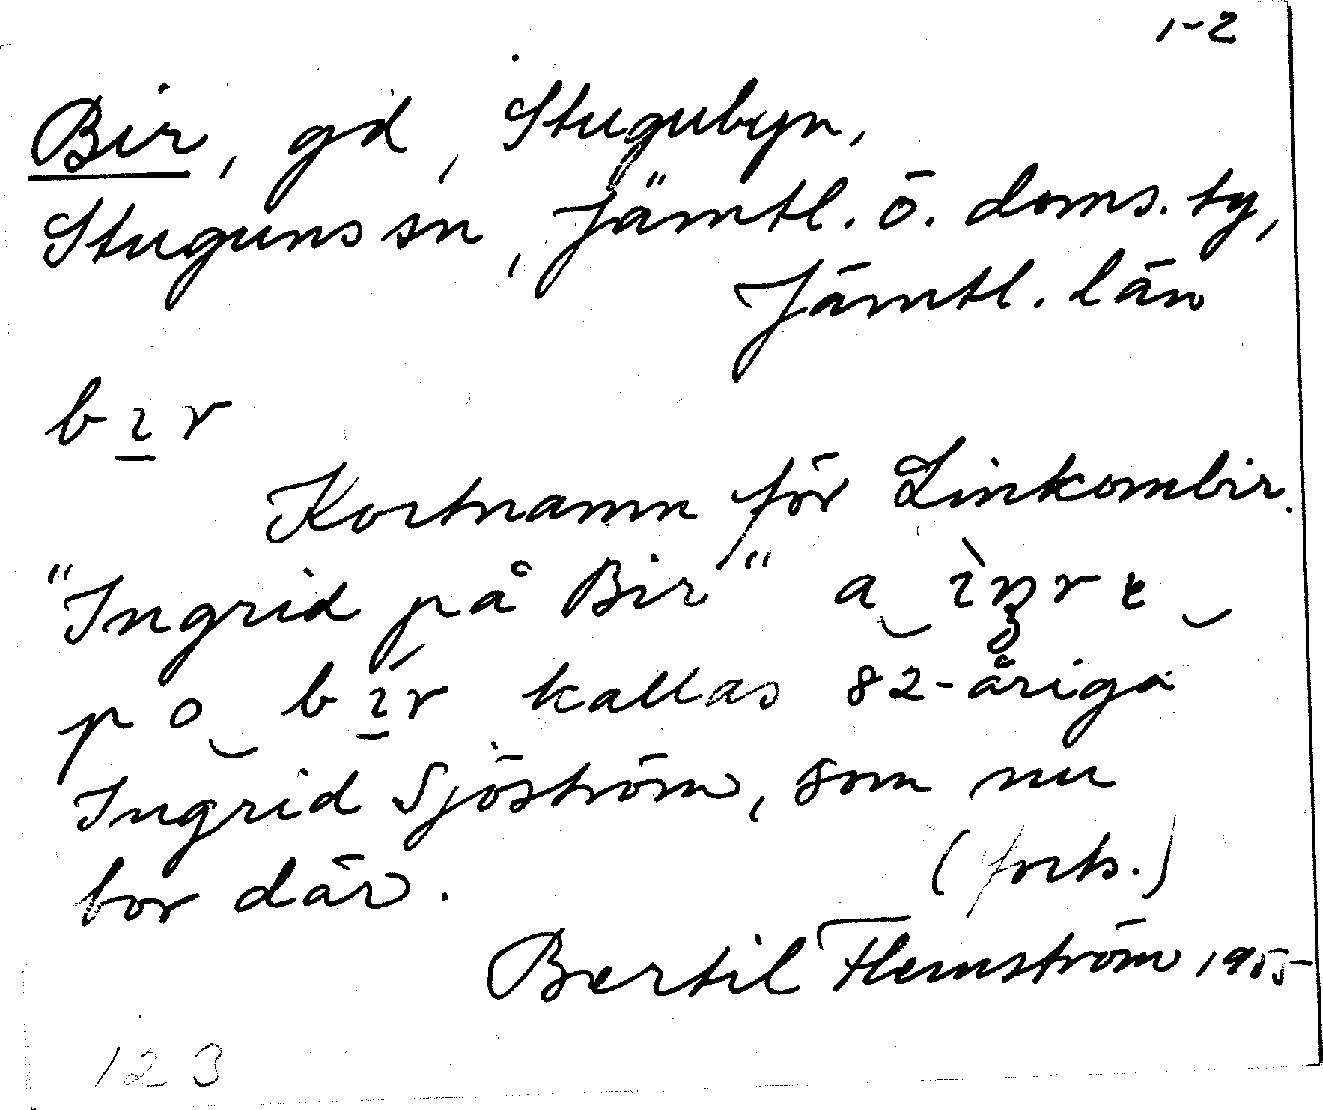 1-2
Bir, gd, Stugubyn,
Stuguns sn, Jämtl. ö. doms. tg,
Jämtl. län
b ɪ̱ r
Kortnamn för Linkombir.
"Ingrid på Bir" a
p o b ɪ̱́ r kallas 82-åriga
Ingrid Sjöström, som nu
bor där.
(forts.)
Bertil Flemström 1955
123